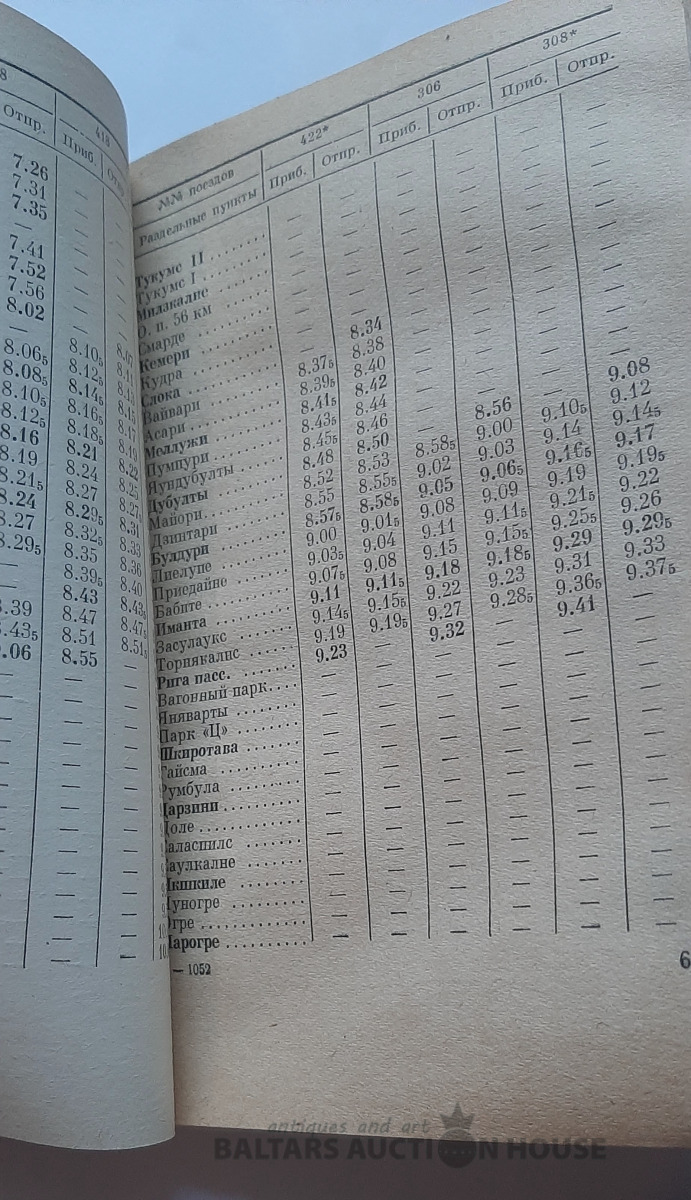 8 418
Отпр. Приб. Отп
7.26 —
7.31 —
7.35 —
— —
7.41 —
7.52 —
7.56 —
8.02 — 8.07
— 8.10₅ 8.11
8.06₅ 8.12₅ 8.13
8.08₅ 8.14₅ 8.15
8.10₅ 8.16₅ 8.17
8.12₅ 8.18₅ 8.19
8.16 8.21 8.22
8.19 8.24 8.25
8.21₅ 8.27 8.27
8.24 8.29₅ 8.31
8.27 8.32₅ 8.33
8.29₅ 8.35 8.36
— 8.39₅ 8.40
— 8.43 8.43₅
.39 8.47 8.47₅
.43₅ 8.51 8.51₅
.06 8.55 —
№№ поездов 422* 306 308*
Раздельные пункты Приб. Отпр. Приб. Отпр. Приб. Отпр.
Тукумс II — — — — — —
Тукумс I — — — — — —
Милзкалне — — — — — —
О. п. 56 км — — — — — —
Смарде — — — — — —
Кемери — — — — — —
Кудра — — — — — —
Слока — 8.34 — — — —
Вайвари 8.37₅ 8.38 — — — —
Асари 8.39₅ 8.40 — — — —
Меллужи 8.41₅ 8.42 — — — —
Пумпури 8.43₅ 8.44 — — — —
Яундубулты 8.45₅ 8.46 — — — —
Дубулты 8.48 8.50 — 8.56 — 9.08
Майори 8.52 8.53 8.58₅ 9.00 9.10₅ 9.12
Дзинтари 8.55 8.55₅ 9.02 9.03 9.14 9.14₅
Булдури 8.57₅ 8.58₅ 9.05 9.06₅ 9.16₅ 9.17
Лиелупе 9.00 9.01₅ 9.08 9.09 9.19 9.19₅
Приедайне 9.03₅ 9.04 9.11 9.11₅ 9.21₅ 9.22
Бабите 9.07₅ 9.08 9.15 9.15₅ 9.25₅ 9.26
Иманта 9.11 9.11₅ 9.18 9.18₅ 9.29 9.29₅
Засулаукс 9.14₅ 9.15₅ 9.22 9.23 9.31 9.33
Торнякалнс 9.19 9.19₅ 9.27 9.28₅ 9.36₅ 9.37₅
Рига пасс. 9.23 — 9.32 — 9.41 —
Вагонный парк — — — — — —
Яняварты — — — — — —
Парк «Ц» — — — — — —
Шкиротава — — — — — —
Гайсма — — — — — —
Румбула — — — — — —
Дарзини — — — — — —
Доле — — — — — —
аласпилс — — — — — —
аулкалне — — — — — —
Икшкиле — — — — — —
уногре — — — — — —
Огре — — — — — —
Парогре — — — — — —
— 1052
6
antiques and art
BALTARS AUCTION HOUSE